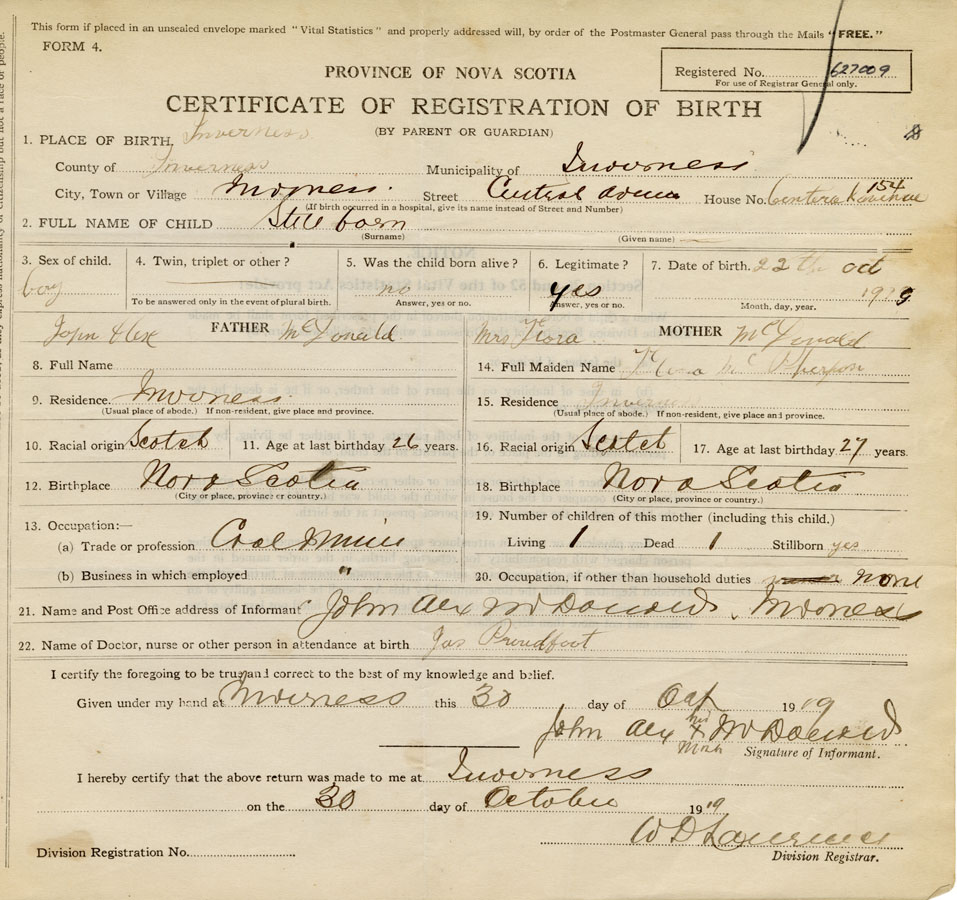 This form if placed in an unsealed envelope marked "Vital Statistics" and properly addressed will, by order of the Postmaster General pass through the Mails "FREE."
FORM 4.
PROVINCE OF NOVA SCOTIA
Registered No. 627009
For use of Registrar General only.
CERTIFICATE OF REGISTRATION OF BIRTH
(BY PARENT OR GUARDIAN)
1. PLACE OF BIRTH, Inverness
County of Inverness Municipality of Inverness
City, Town or Village Inverness. Street Central House No. 154 Central Avenue
(If birth occurred in a hospital, give its name instead of Street and Number)
2. FULL NAME OF CHILD Still born
(Surname) (Given name)
3. Sex of child. 4. Twin, triplet or other? 5. Was the child born alive? 6. Legitimate? 7. Date of birth. 22th Oct
boy no yes 1919
To be answered only in the event of plural birth. Answer, yes or no. Answer, yes or no. Month, day, year.
John Alex FATHER McDonald Mrs Flora MOTHER McDonald
8. Full Name 14. Full Maiden Name Flora Mc Pherson
9. Residence. Inverness 15. Residence Inverness
(Usual place of abode.) If non-resident, give place and province. (Usual place of abode.) If non-resident, give place and province.
10. Racial origin Scotch 11. Age at last birthday 26 years. 16. Racial origin Scotch 17. Age at last birthday 27 years.
12. Birthplace Nova Scotia 18. Birthplace Nova Scotia
(City or place, province or country.) (City or place, province or country.)
13. Occupation:— 19. Number of children of this mother (including this child.)
(a) Trade or profession Coal Miner Living 1 Dead 1 Stillborn yes
(b) Business in which employed " 20. Occupation, if other than household duties none
21. Name and Post Office address of Informant John Alex McDonald, Inverness
22. Name of Doctor, nurse or other person in attendance at birth Jas Proudfoot
I certify the foregoing to be true and correct to the best of my knowledge and belief.
Given under my hand at Inverness this 30 day of Oct 1919
John Alex his X McDonald
mark Signature of Informant.
I hereby certify that the above return was made to me at Inverness
on the 30 day of October 1919
W D Lawrence
Division Registration No. Division Registrar.